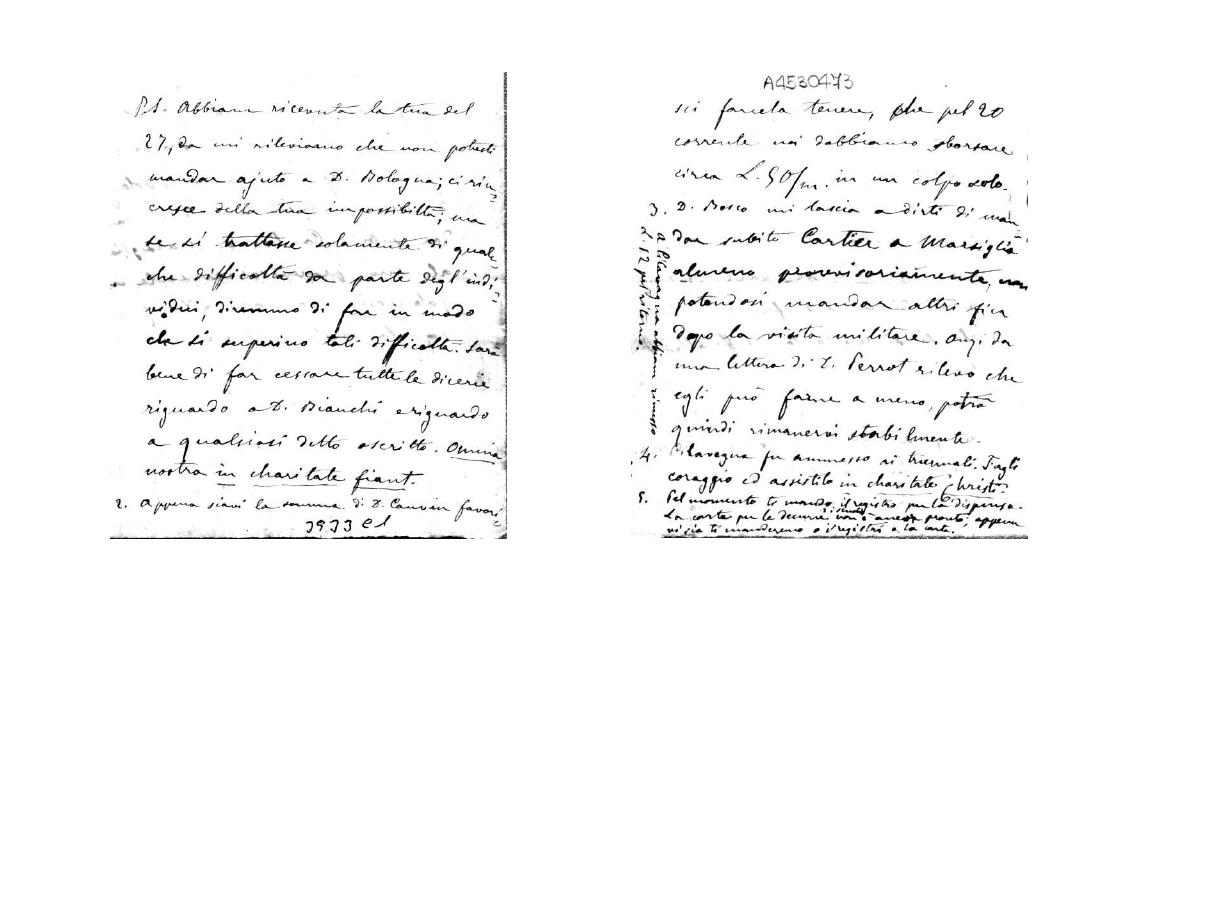 P.S. Abbiam ricevuta la tua del
27, da cui rileviamo che non potesti
mandar ajuto a D. Bologna; ci rin-
cresce della tua impossibiltà; ma
se si trattasse solamente di qual-
che difficoltà da parte degl'indi-
vidui, diremmo di fare in modo
che si superino tali difficoltà. Sarà
bene di far cessare tutte le dicerie
riguardo a D. Bianchi e riguardo
a qualsiasi detto o scritto. Omnia
nostra in charitate fiant.
2. Appena siavi la somma di D. Cauvin favori-
3933 C1
A4530473
sci farcela tenere, che pel 20
corrente noi dobbiamo sborsare
circa L. 50/m. in un colpo solo.
3. D. Bosco mi lascia a dirti di man-
dar subito Cartier a Marsiglia
almeno provvisoriamente, non
potendosi mandar altri fin
dopo la visita militare. Anzi da
una lettera di D. Perrot rilevo che
egli può farne a meno, potrà
quindi rimanervi stabilmente.
4. Pilavegna fu ammesso ai triennali. Fagli
coraggio ed assistilo in charitate Christi.
5. Pel momento ti mando il registro per la dispensa.
La carta per le decurie non è ancor pronta, appena
vi sia ti manderemo i registri e la carta.
a Pilavegna abbiam rimesso
L. 12 pel ritorno.